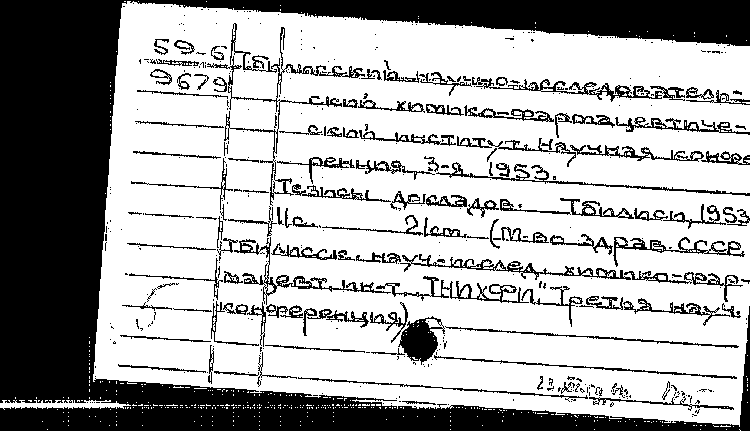 59-6
9679
Тбилисский научно-исследователь-
ский химико-фармацевтиче-
ский институт. Научная конфе
ренция, 3-я. 1953.
Тезисы докладов. Тбилиси, 1953
11с. 21см. (М-во здрав. СССР.
Тбилисск. науч.-исслед. химико-фар-
мацевт. ин-т „ТНИХФИ." Третья науч.
конференция)